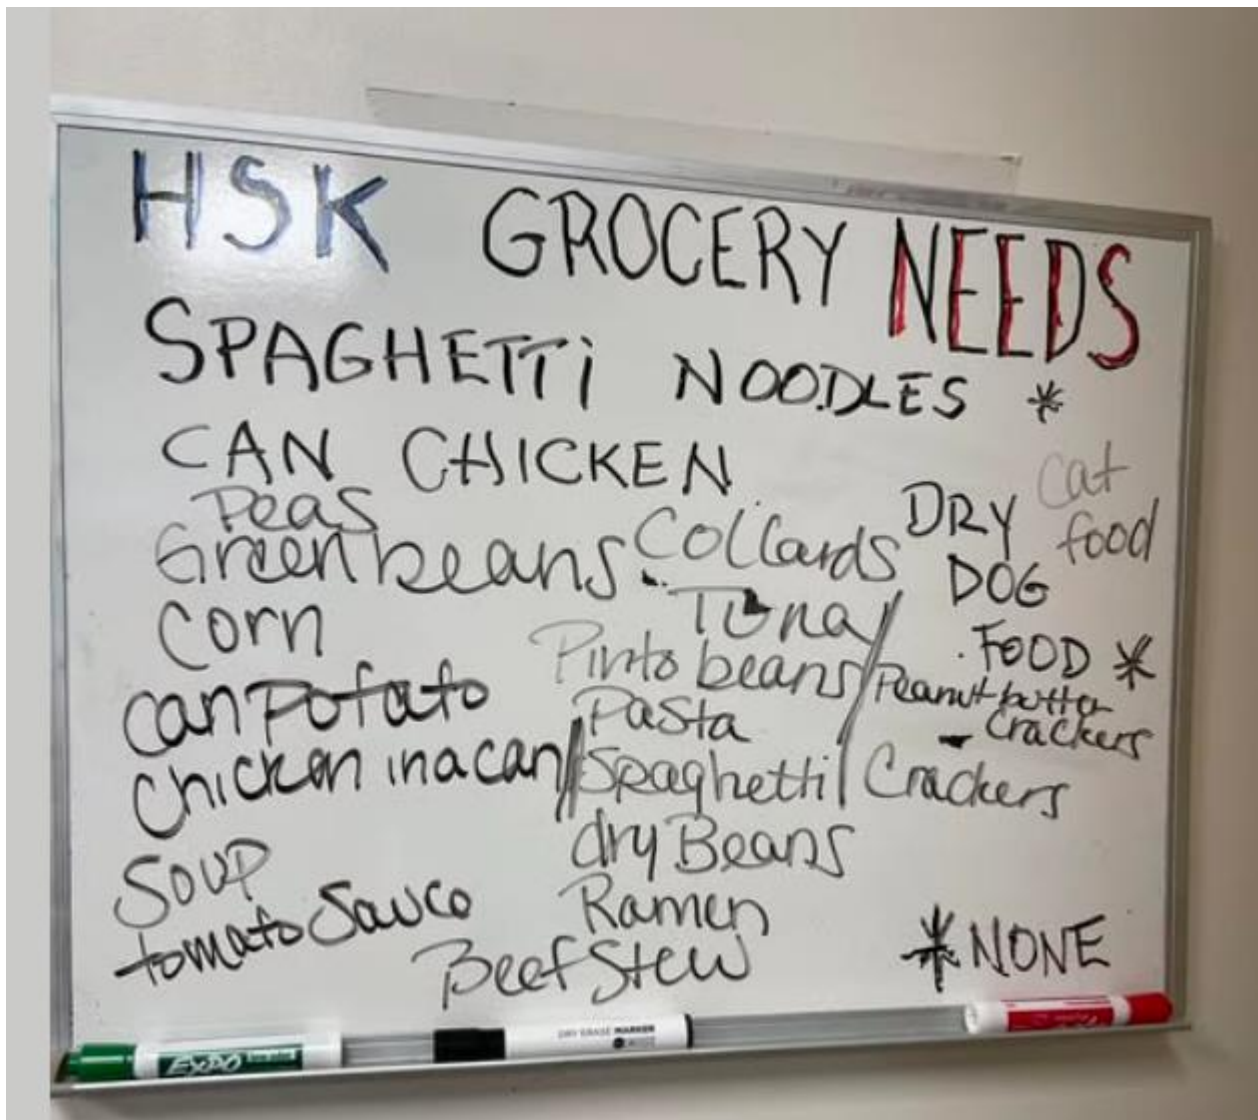 HSK GROCERY NEEDS
SPAGHETTI NOODLES *
CAN CHICKEN
Peas
Green beans
Corn
can Potato
Chicken in a can
Soup
tomato Sauce
Collards
Tuna
Pinto beans
Pasta
Spaghetti
dry Beans
Ramen
Beef Stew
DRY
DOG
FOOD *
Cat
food
Peanut butter
Crackers
Crackers
* NONE
EXPO
DRY ERASE MARKER